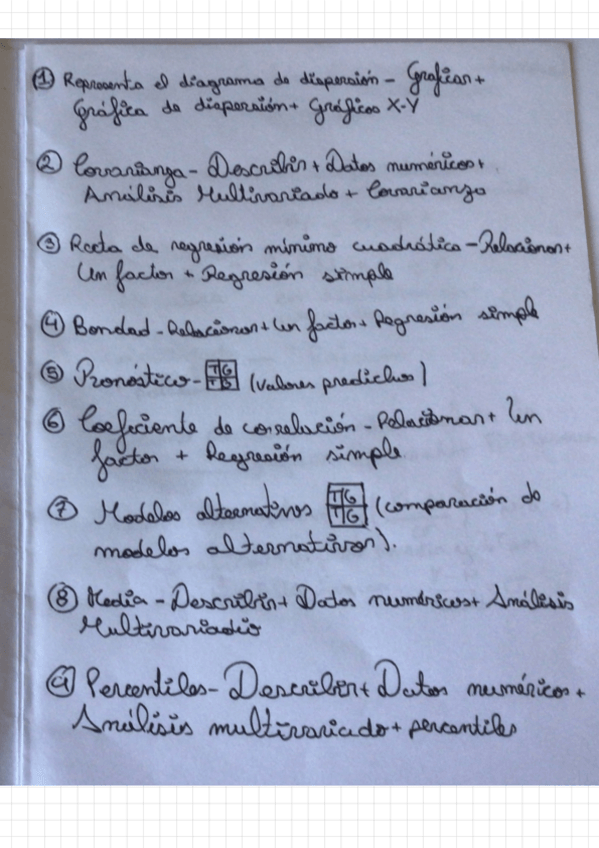 ① Representa el diagrama de dispersión - Graficar+
Gráfica de dispersión+ Gráficos X-Y
② Covarianza - Describir + Datos numéricos+
Análisis Multivariado + Covarianza
③ Recta de regresión mínimo cuadrática - Relacionar+
Un factor + Regresión simple
④ Bondad - Relacionar + Un factor + Regresión simple
⑤ Pronóstico - (valores predichos)
⑥ Coeficiente de correlación - Relacionar + Un
factor + Regresión simple
⑦ Modelos alternativos TG TG (comparación de
modelos alternativos).
⑧ Media - Describir + Datos numéricos + Análisis
Multivariado
⑨ Percentiles - Describir + Datos numéricos +
Análisis multivariado + percentiles